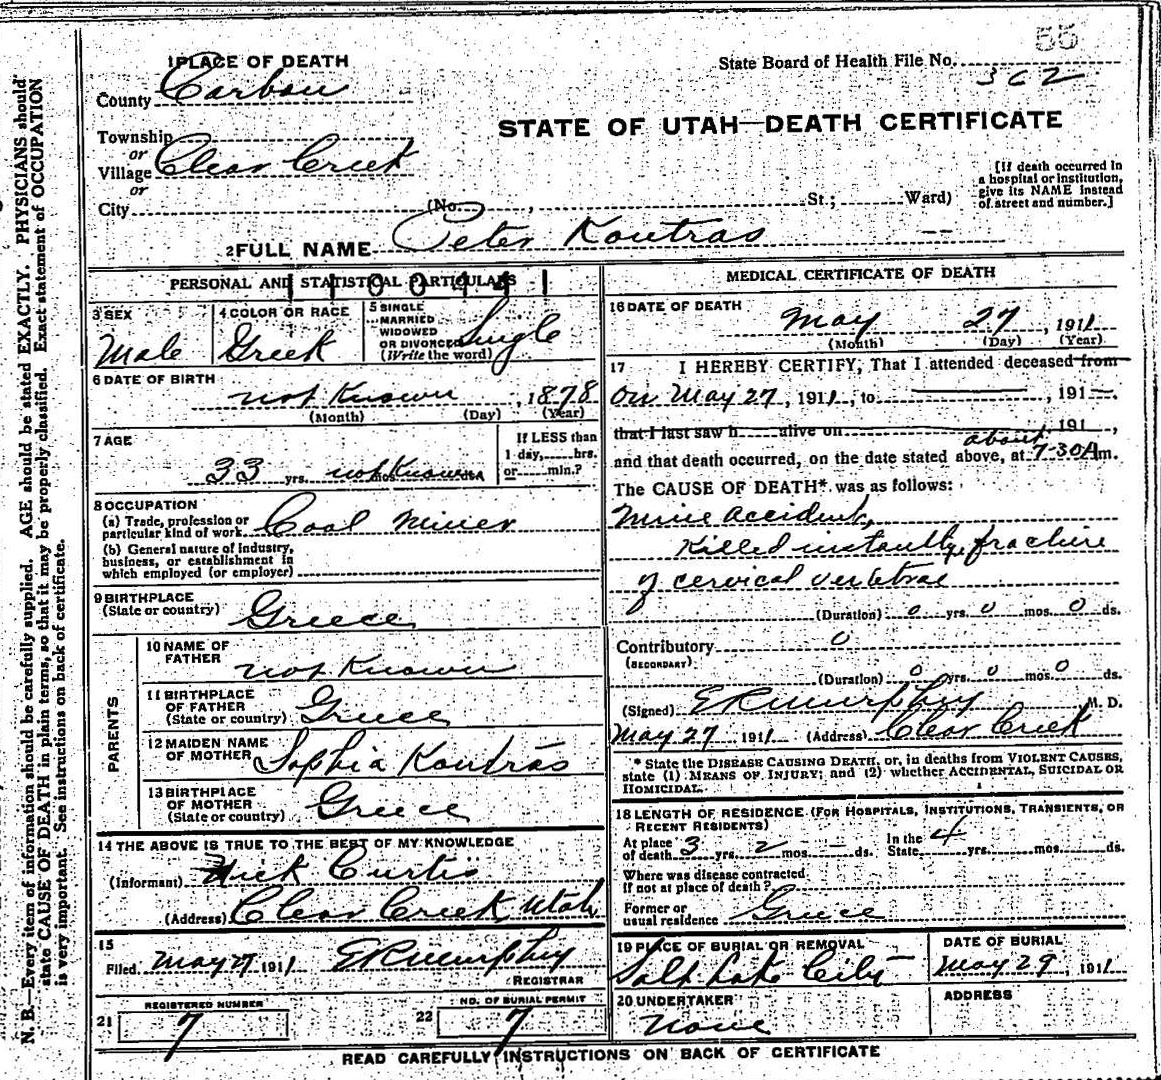 55
1 PLACE OF DEATH
State Board of Health File No. 302
County Carbon
STATE OF UTAH—DEATH CERTIFICATE
Township
or
Village Clear Creek
or
City (No. , St.; Ward)
[If death occurred in
a hospital or institution,
give its NAME instead
of street and number.]
2 FULL NAME Peter Koutras
PERSONAL AND STATISTICAL PARTICULARS
3 SEX
Male
4 COLOR OR RACE
Greek
5 SINGLE
MARRIED
WIDOWED
OR DIVORCED
(Write the word)
Single
6 DATE OF BIRTH
not Known, 1878
(Month) (Day) (Year)
7 AGE
33 yrs. not Known mos.
If LESS than
1 day, hrs.
or min.?
8 OCCUPATION
(a) Trade, profession or
particular kind of work Coal Miner
(b) General nature of industry,
business, or establishment in
which employed (or employer)
9 BIRTHPLACE
(State or country) Greece
PARENTS
10 NAME OF
FATHER
not Known
11 BIRTHPLACE
OF FATHER
(State or country) Greece
12 MAIDEN NAME
OF MOTHER Sophia Koutras
13 BIRTHPLACE
OF MOTHER
(State or country) Greece
14 THE ABOVE IS TRUE TO THE BEST OF MY KNOWLEDGE
(Informant) Nick Curtis
(Address) Clear Creek, Utah
15
Filed May 27 1911 E R Murphy
REGISTRAR
REGISTERED NUMBER
21 7
NO. OF BURIAL PERMIT
22 7
MEDICAL CERTIFICATE OF DEATH
16 DATE OF DEATH
May 27, 1911
(Month) (Day) (Year)
17 I HEREBY CERTIFY, That I attended deceased from
on May 27, 1911, to , 191
that I last saw h alive on , 191 ,
about
and that death occurred, on the date stated above, at 7-30 A m.
The CAUSE OF DEATH* was as follows:
Mine accident,
Killed instantly, fracture
of cervical vertebrae
(Duration) 0 yrs. 0 mos. 0 ds.
Contributory 0
(SECONDARY)
(Duration) 0 yrs. 0 mos. 0 ds.
(Signed) E R Murphy M. D.
May 27 1911 (Address) Clear Creek
* State the DISEASE CAUSING DEATH, or, in deaths from VIOLENT CAUSES,
state (1) MEANS OF INJURY; and (2) whether ACCIDENTAL, SUICIDAL OR
HOMICIDAL.
18 LENGTH OF RESIDENCE (FOR HOSPITALS, INSTITUTIONS, TRANSIENTS, OR
RECENT RESIDENTS)
At place
of death 3 yrs. 2 mos. — ds.
In the
State 4 yrs. mos. ds.
Where was disease contracted
if not at place of death?
Former or
usual residence Greece
19 PLACE OF BURIAL OR REMOVAL
Salt Lake City
DATE OF BURIAL
May 29, 1911
20 UNDERTAKER
None
ADDRESS
READ CAREFULLY INSTRUCTIONS ON BACK OF CERTIFICATE
N. B.—Every item of information should be carefully supplied. AGE should be stated EXACTLY. PHYSICIANS should
state CAUSE OF DEATH in plain terms, so that it may be properly classified. Exact statement of OCCUPATION
is very important. See instructions on back of certificate.